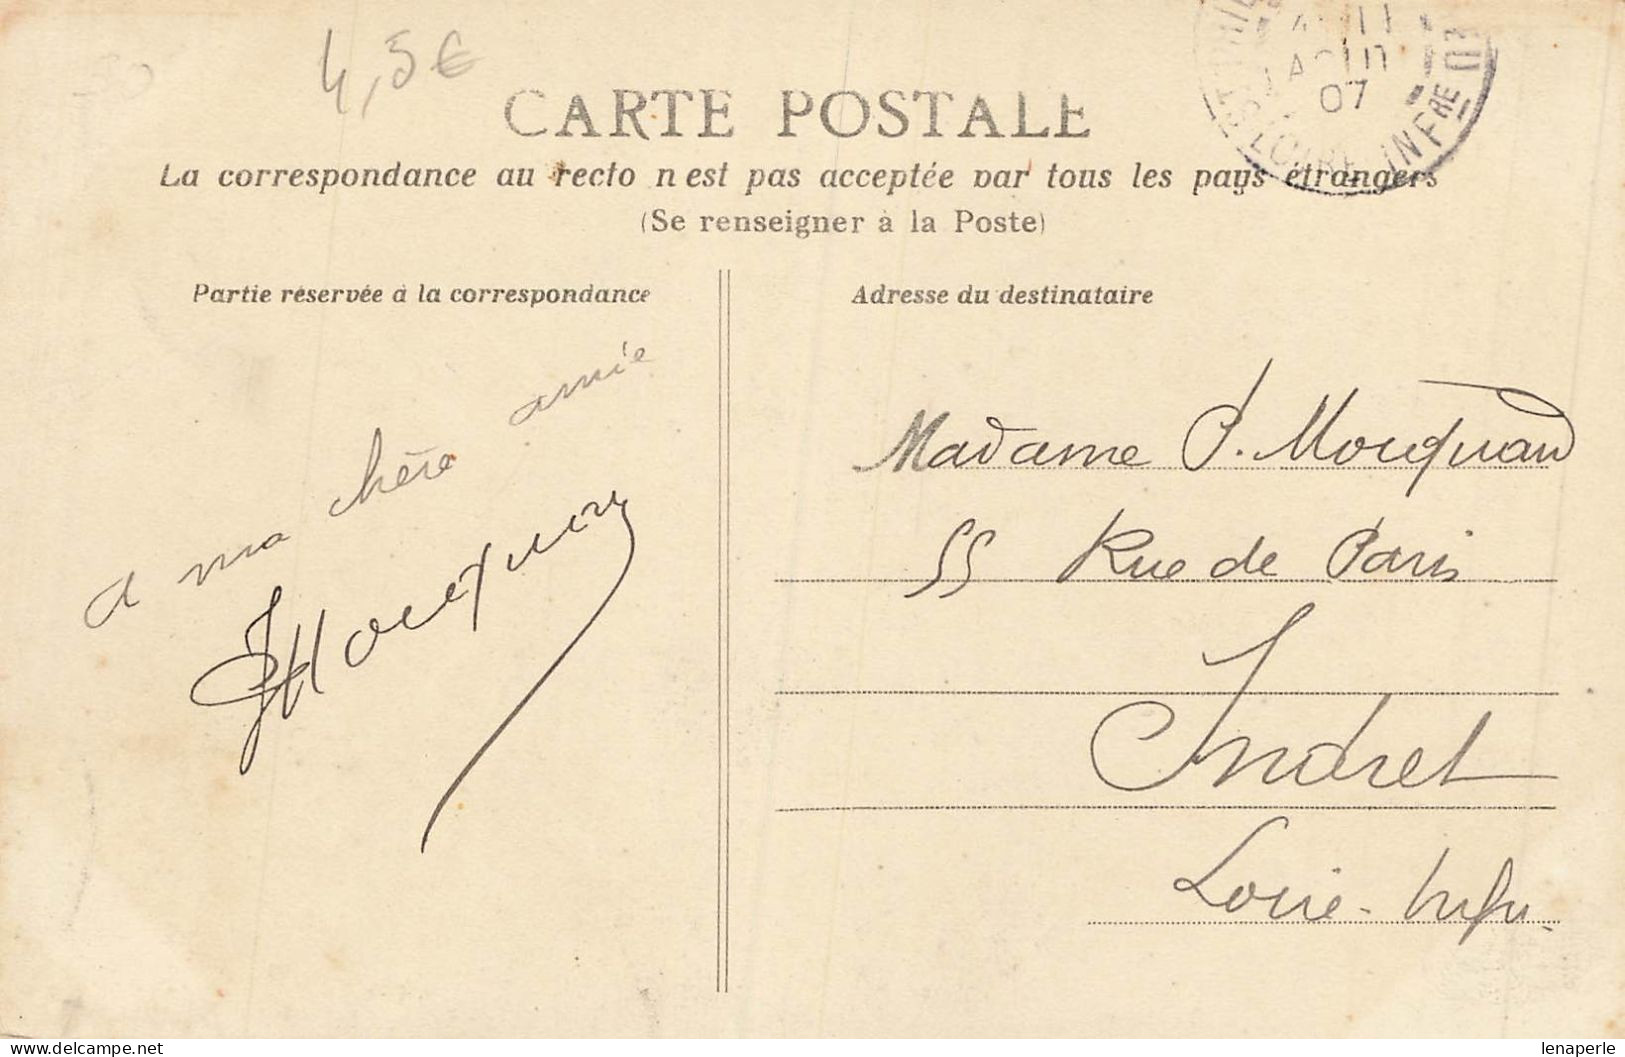 4,5€
CARTE POSTALE
La correspondance au recto n'est pas acceptée par tous les pays étrangers
(Se renseigner à la Poste)
Partie réservée à la correspondance
Adresse du destinataire
07
LOIRE INFRE
a ma chère amie
Madame P. Mouquand
55 Rue de Paris
Indret
Loire-Infre
lenaperle